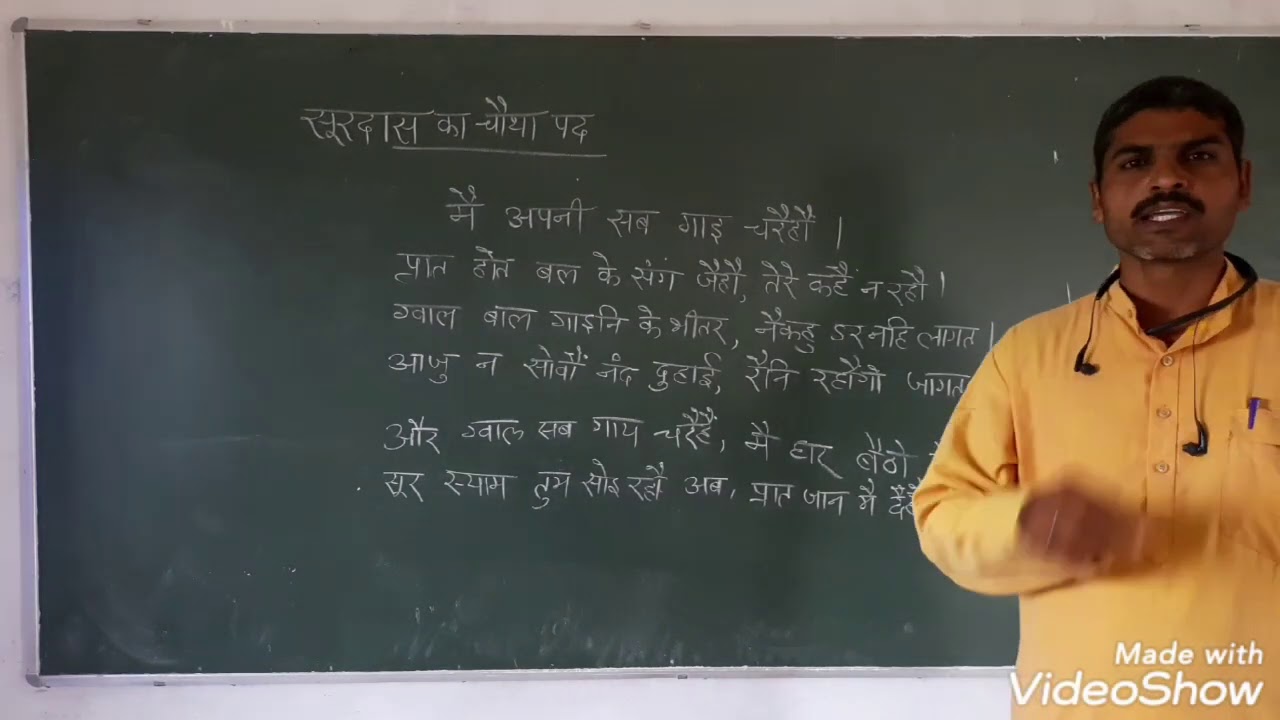 सूरदास का चौथा पद
मै अपनी सब गाइ चरैहौं ।
प्रात होत बल के संग जैहौ, तेरे कहैं न रहौ ।
ग्वाल बाल गाइनि के भीतर, नैकहु डर नहि लागत ।
आजु न सोवौं नंद दुहाई, रैनि रहौंगो जागत
और ग्वाल सब गाय चरैहैं, मै घर बैठो
सूर स्याम तुम सोइ रहौ अब, प्रात जान मै
Made with
VideoShow